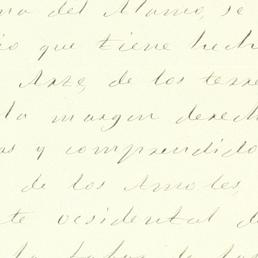 na del Alamo, se
io que tiene hech
Arze, de los terre
la margen derech
as y comprendido
de los Amoles,
te occidental d